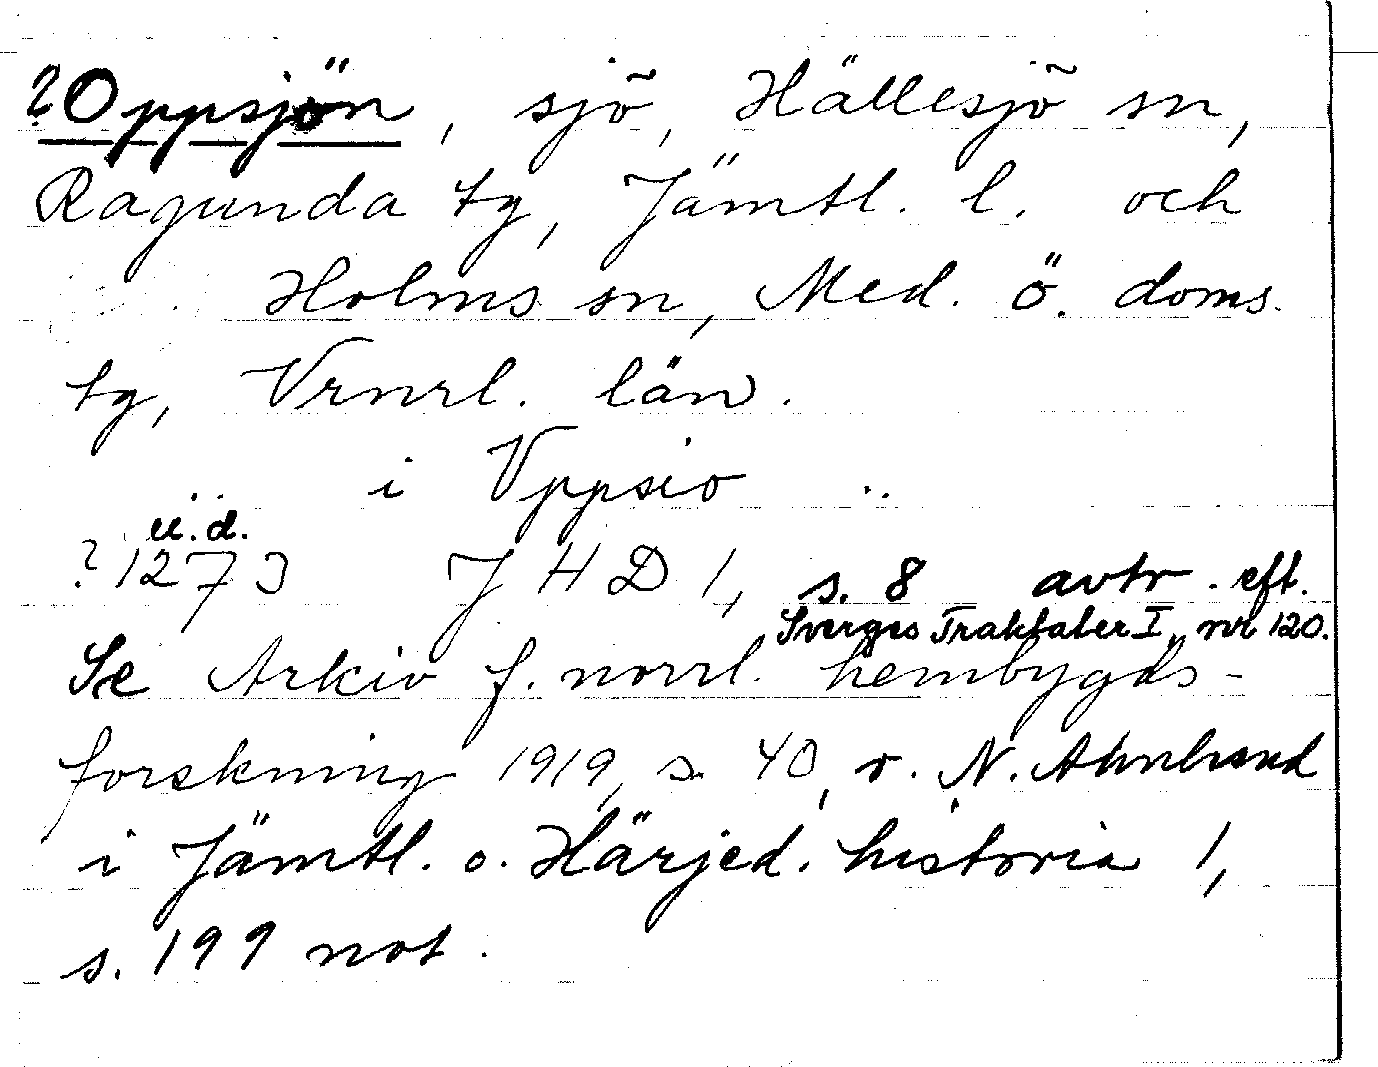 ?Oppsjön, sjö, Hällesjö sn,
Ragunda tg, Jämtl. l. och
Holms sn, Med. ö. doms.
tg, Vrnrl. län.
i Vppsio ..
u.d.
?1273 JHD 1, s. 8 avtr. eft.
Sverges Traktater I, nr 120.
Se Arkiv f. norrl. hembygds-
forskning 1919, s. 40, o. N. Ahnlund
i Jämtl. o. Härjed. historia 1,
s. 199 not.